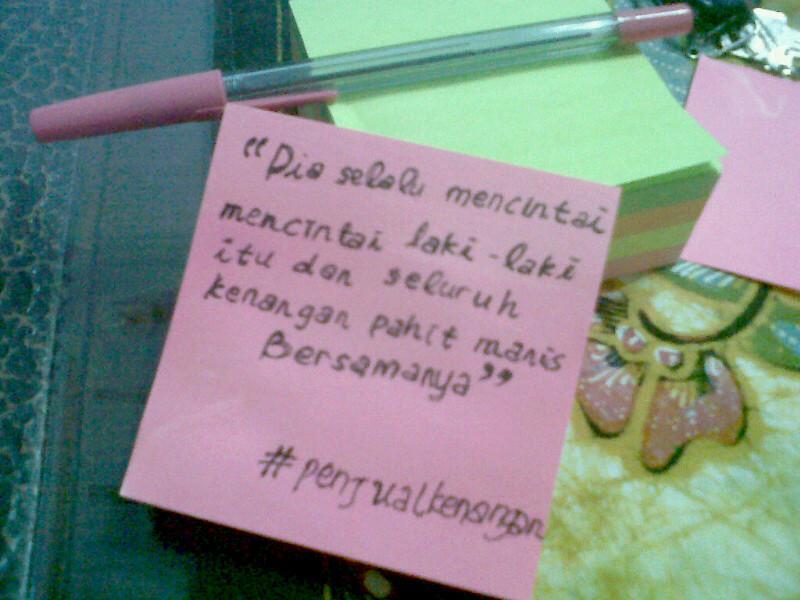 “Dia selalu mencintai
mencintai laki-laki
itu dan seluruh
kenangan pahit manis
Bersamanya”
#penjualkenangan